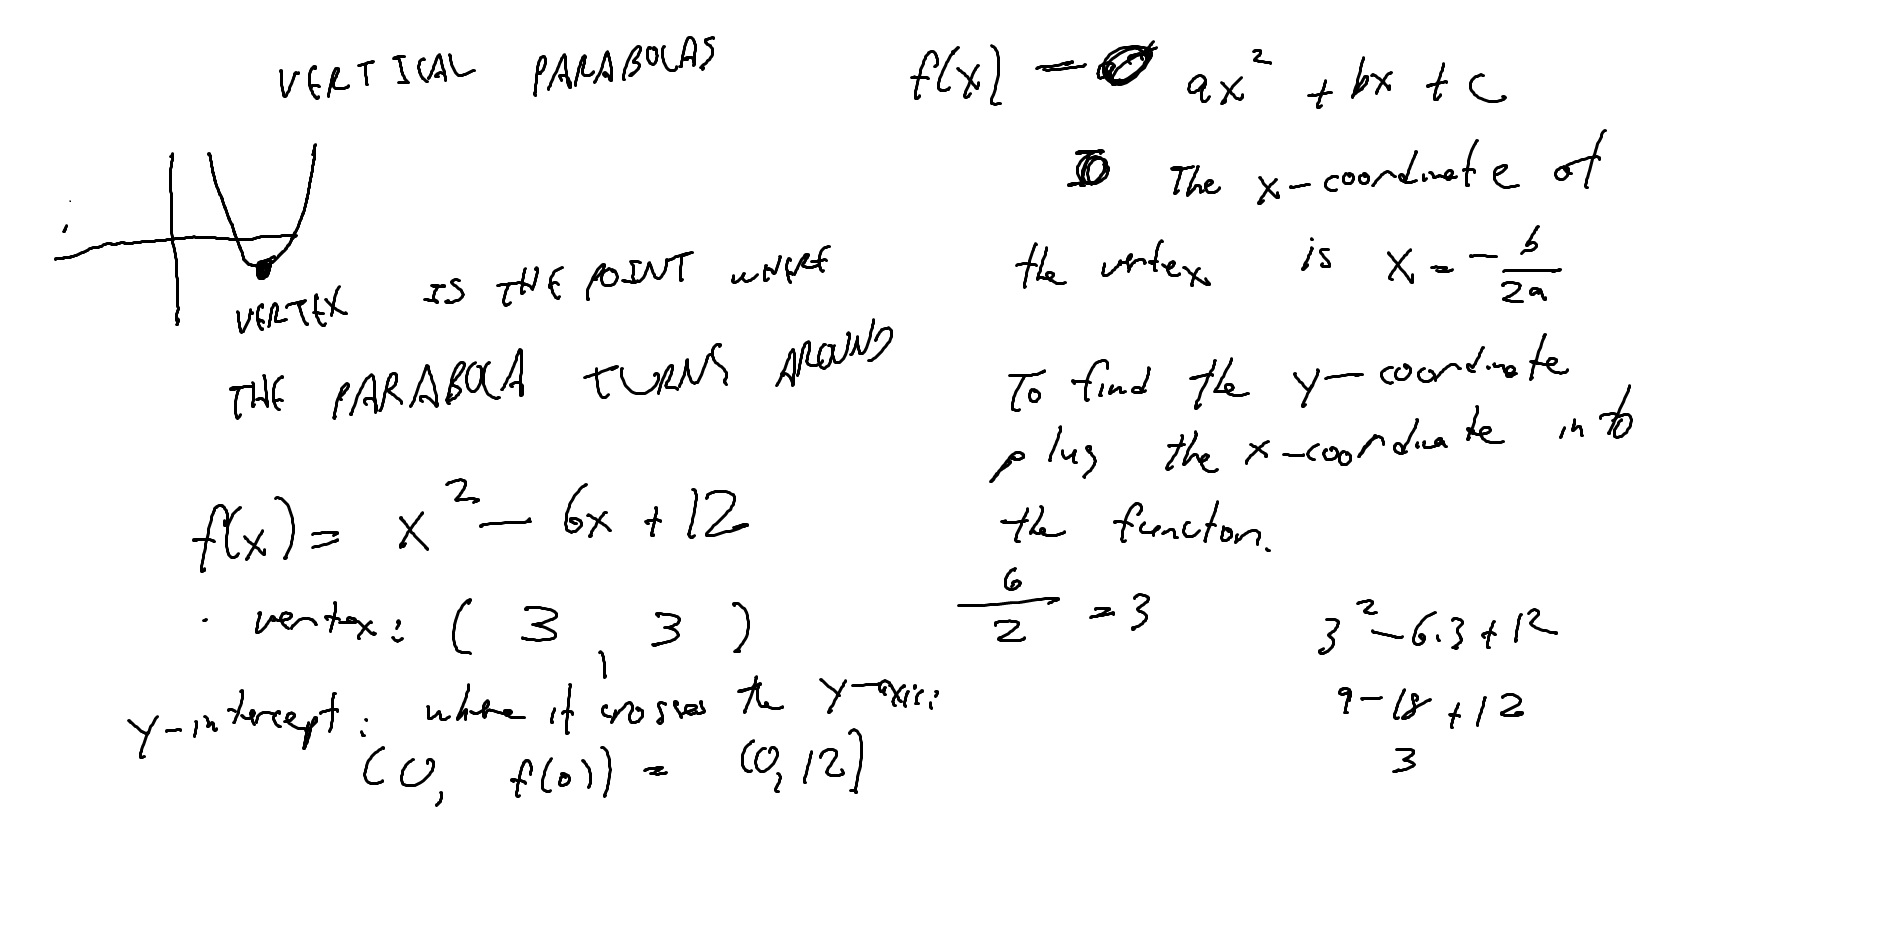 VERTICAL PARABOLAS
VERTEX IS THE POINT WHERE
THE PARABOLA TURNS AROUND
f(x) = x² - 6x + 12
vertex: ( 3 , 3 )
y-intercept: where it crosses the y-axis:
(0, f(0)) = (0, 12)
f(x) = ax² + bx + c
The x-coordinate of
the vertex is x = - b/2a
To find the y-coordinate
plug the x-coordinate into
the function.
6/2 = 3
3² - 6.3 + 12
9 - 18 + 12
3